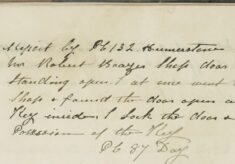 Report by PC 132 Humerstone
Mr Robert Shop door
standing open. I at once went
Shop & found the door open a
Key inside. I Lock the door &
Possession of the Key
PC 87 Day